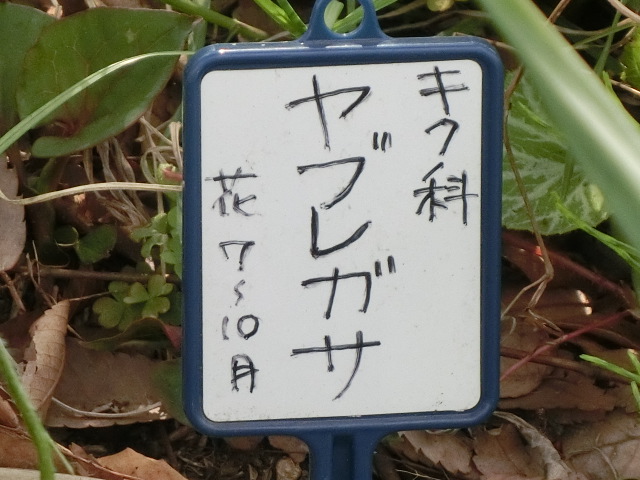 キク科
ヤブレガサ
花 7~10月